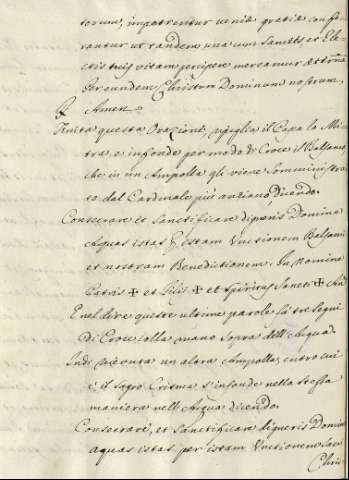 torum, impetrentur veniæ gratiæ confe
rantur ut tandem una cum Sanctis, et Ele
ctis tuis vitam percipere mereamur æternã
Per eundem Christum Dominum nostrum,
℟ Amen.
Finita questa Orazione, ripiglia il Papa la Mi
tra, e infonde per modo di Croce il Balsamo
che in un Ampolla gli viene somministra
to dal Cardinale più anziano dicendo.
Consecrare et Sanctificare digneris Domine
Aquas istas p istam Unctionem Balsami
et nostram Benedictionem. In Nomine
Patris ✠ et Filii ✠ et Spiritus Sancti ✠ Am
E nel dire queste ultime parole fà tre segni
Di Croce colla mano sopra dell'Acqua
Indi ricevuta un altra Ampolla, entro cui
è il sagro Crisma s'infonde nella stessa
maniera nell'Acqua dicendo.
Consecrare, et Sanctificare digneris Domine
aquas istas per istam Unctionem Sacr
Chris